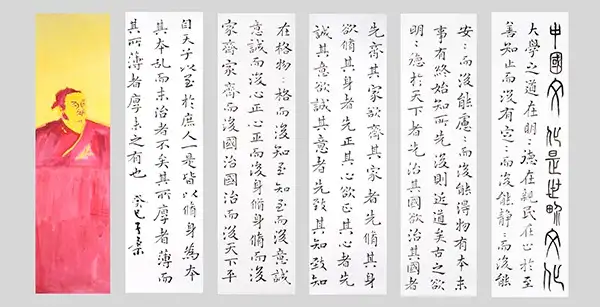 中國文化是世界文化
大學之道在明:德在親民在止於至
善知止而後有定:而後能靜:而後能
安:而後能慮:而後能得物有本末
事有終始知所先後則近道矣古之欲
明:德於天下者先治其國欲治其國者
先齊其家欲齊其家者先脩其身
欲脩其身者先正其心欲正其心者先
誠其意欲誠其意者先致其知致知
在格物:格而後知至知至而後意誠
意誠而後心正心正而後身脩身脩而後
家齊家齊而後國治國治而後天下平
自天子以至於庶人一是皆以脩身為本
其本亂而末治者不矣其所厚者薄而
其所薄者厚未之有也 癸巳